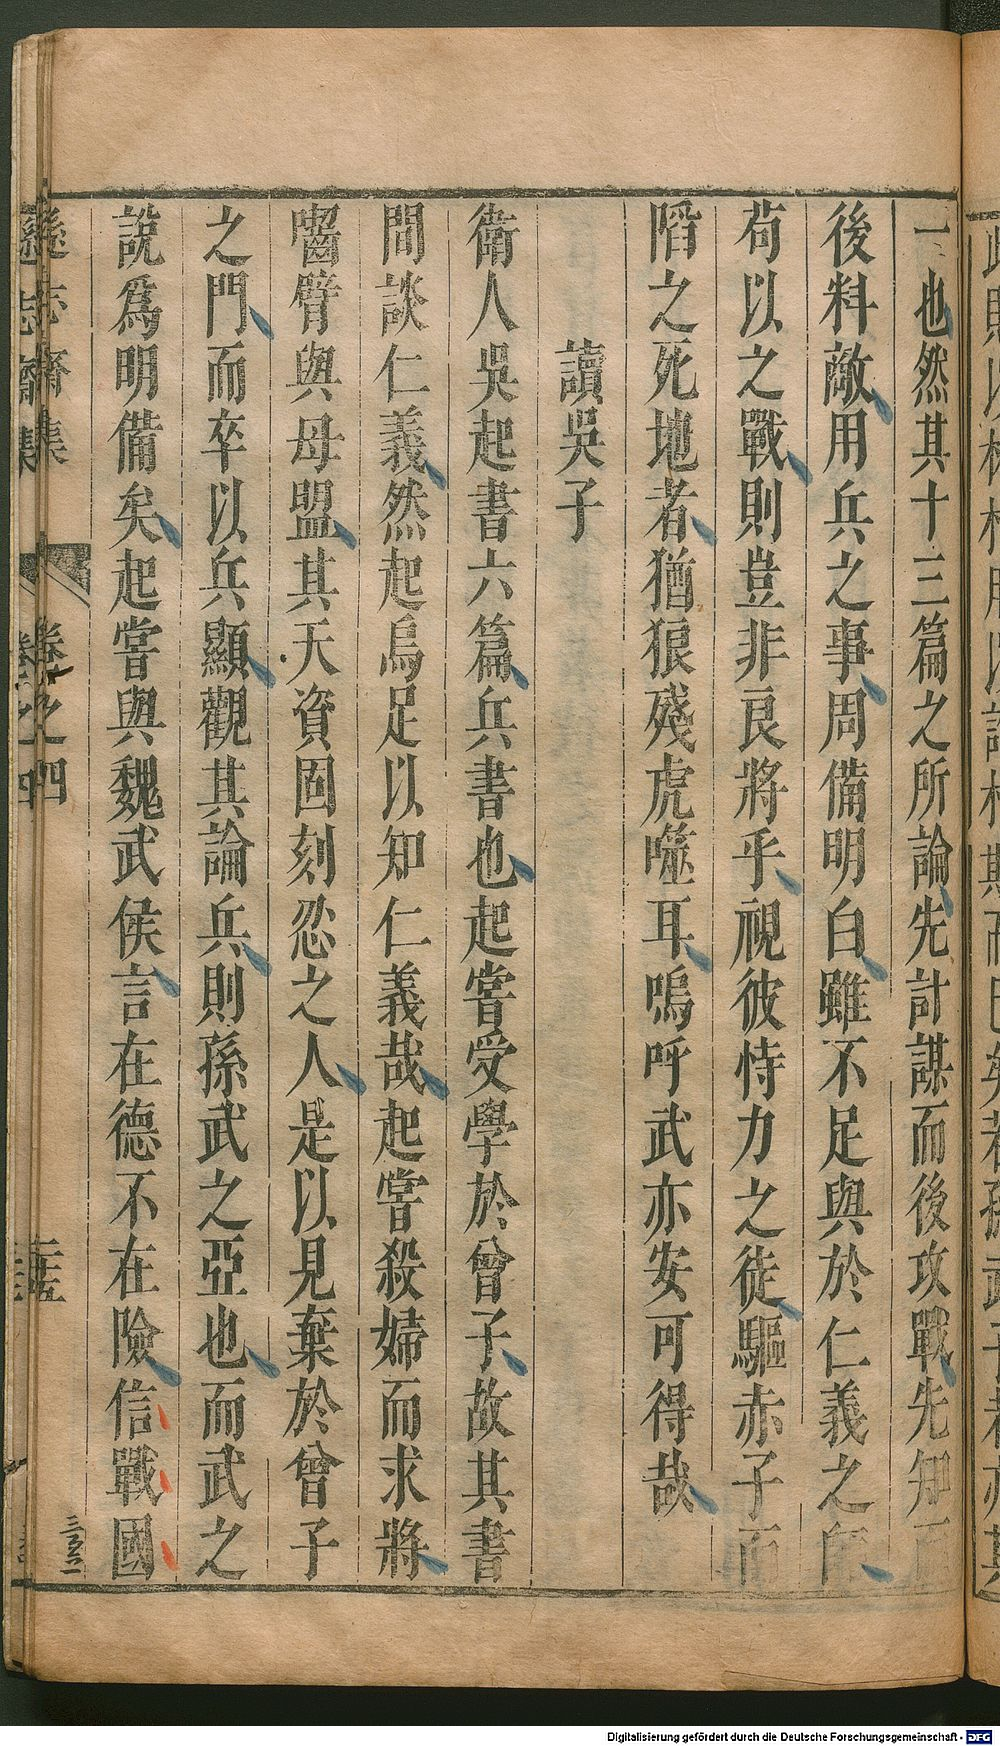 一也然其十三篇之所論先計謀而後攻戰先知而
後料敵用兵之事周備明白雖不足與於仁義之師
苟以之戰則豈非良將乎視彼恃力之徒驅赤子而
陷之死地者猶狼殘虎噬耳嗚呼武亦安可得哉
讀吳子
衛人吳起書六篇兵書也起嘗受學於曾子故其書
間談仁義然起烏足以知仁義哉起嘗殺婦而求將
嚙臂與母盟其天資固刻忍之人是以見棄於曾子
之門而卒以兵顯觀其論兵則孫武之亞也而武之
說爲明備矣起嘗與魏武侯言在德不在險信戰國
遜志齋集
卷之四
Digitalisierung gefördert durch die Deutsche Forschungsgemeinschaft - DFG